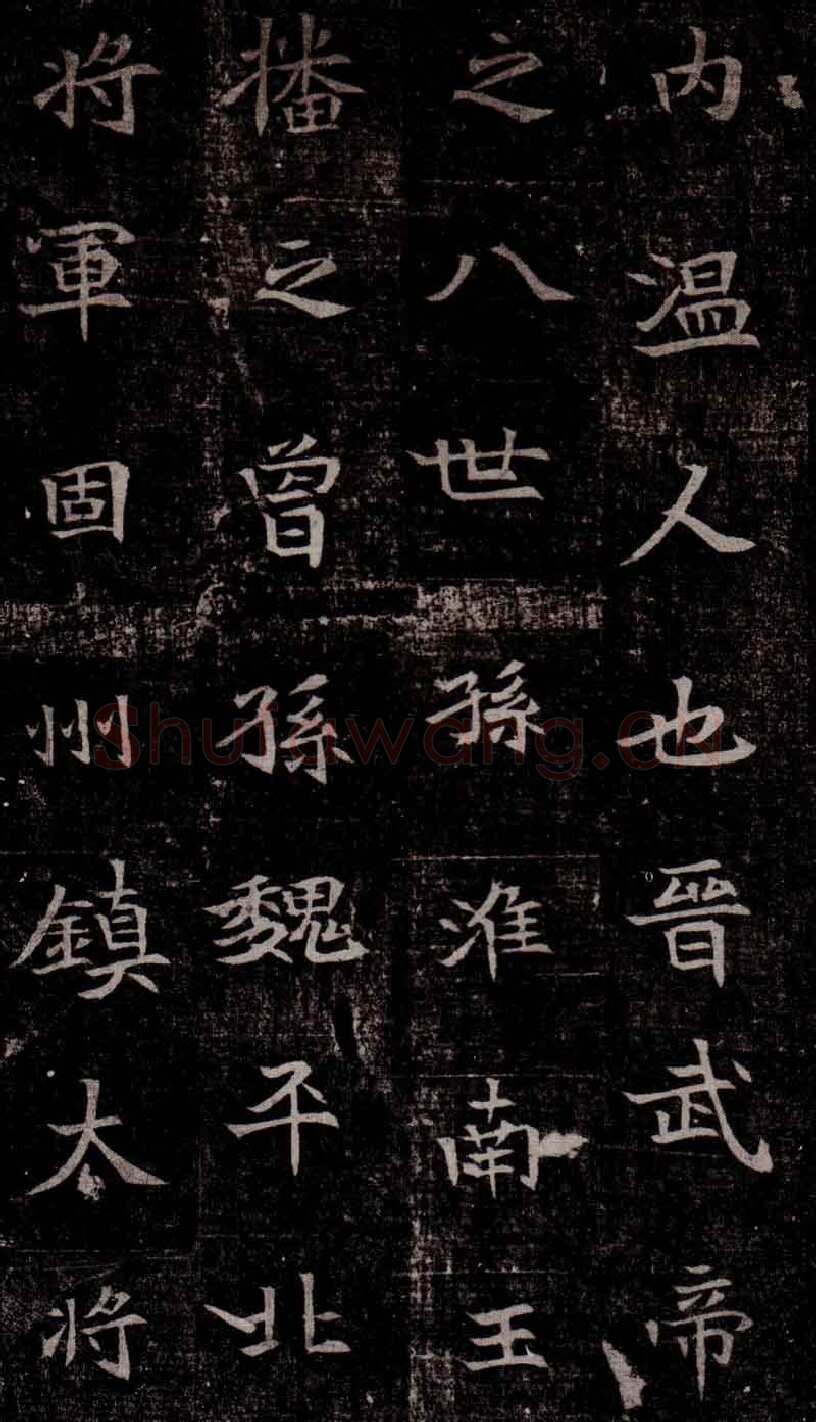 内温人也晉武帝
之八世孫淮南王
播之曾孫魏平北
將軍固州鎮大將
Shufawang.cn